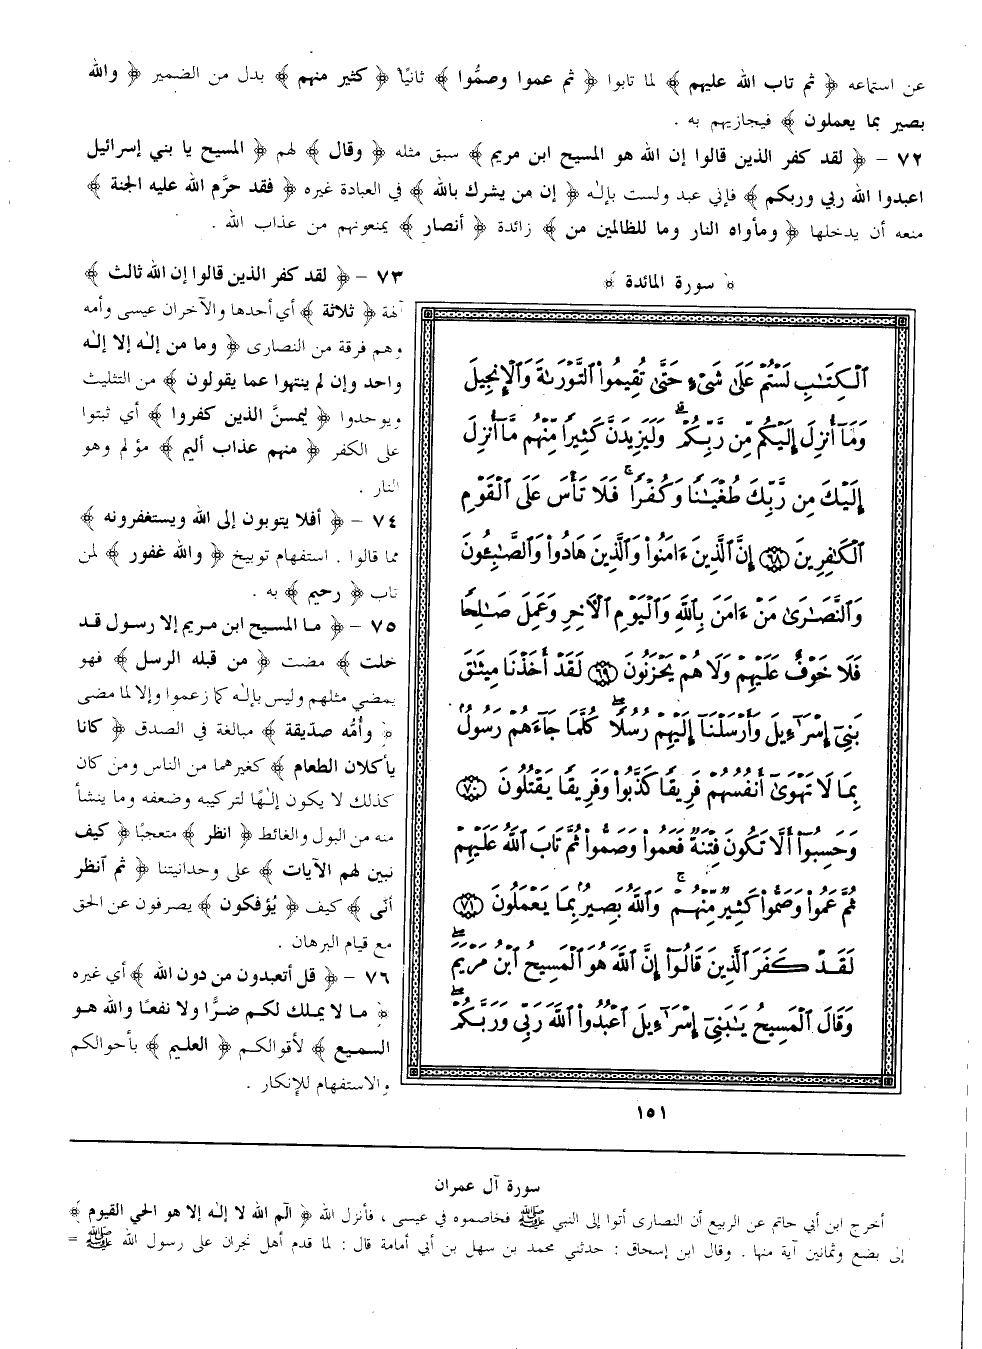 عن استماعه ﴿ ثم تاب الله عليهم ﴾ لما تابوا ﴿ ثم عموا وصمُّوا ﴾ ثانيًا ﴿ كثير منهم ﴾ بدل من الضمير ﴿ والله
بصير بما يعملون ﴾ فيجازيهم به .
٧٢ - ﴿ لقد كفر الذين قالوا إن الله هو المسيح ابن مريم ﴾ سبق مثله ﴿ وقال ﴾ لهم ﴿ المسيح يا بني إسرائيل
اعبدوا الله ربي وربكم ﴾ فإني عبد ولست بإلٰه ﴿ إن من يشرك بالله ﴾ في العبادة غيره ﴿ فقد حرَّم الله عليه الجنة ﴾
منعه أن يدخلها ﴿ ومأواه النار وما للظالمين من ﴾ زائدة ﴿ أنصار ﴾ يمنعونهم من عذاب الله .
٧٣ - ﴿ لقد كفر الذين قالوا إن الله ثالث ﴾
آلهة ﴿ ثلاثة ﴾ أي أحدها والآخران عيسى وأمه
وهم فرقة من النصارى ﴿ وما من إلٰه إلا إلٰه
واحد وإن لم ينتهوا عما يقولون ﴾ من التثليث
ويوحدوا ﴿ ليمسنَّ الذين كفروا ﴾ أي ثبتوا
على الكفر ﴿ منهم عذاب أليم ﴾ مؤلم وهو
النار .
٧٤ - ﴿ أفلا يتوبون إلى الله ويستغفرونه ﴾
مما قالوا . استفهام توبيخ ﴿ والله غفور ﴾ لمن
تاب ﴿ رحيم ﴾ به .
٧٥ - ﴿ ما المسيح ابن مريم إلا رسول قد
خلت ﴾ مضت ﴿ من قبله الرسل ﴾ فهو
يمضي مثلهم وليس بإلٰه كما زعموا وإلا لما مضى
﴿ وأمُّه صدّيقة ﴾ مبالغة في الصدق ﴿ كانا
يأكلان الطعام ﴾ كغيرهما من الناس ومن كان
كذلك لا يكون إلٰهًا لتركيبه وضعفه وما ينشأ
منه من البول والغائط ﴿ انظر ﴾ متعجبًا ﴿ كيف
نبين لهم الآيات ﴾ على وحدانيتنا ﴿ ثم آنظر
أنّى ﴾ كيف ﴿ يُؤفكون ﴾ يصرفون عن الحق
مع قيام البرهان .
٧٦ - ﴿ قل أتعبدون من دون الله ﴾ أي غيره
﴿ ما لا يملك لكم ضرًّا ولا نفعًا والله هو
السميع ﴾ لأقوالكم ﴿ العليم ﴾ بأحوالكم
والاستفهام للإنكار .
﴿ سورة المائدة ﴾
ٱلْكِتَٰبِ لَسْتُمْ عَلَىٰ شَىْءٍ حَتَّىٰ تُقِيمُوا۟ ٱلتَّوْرَىٰةَ وَٱلْإِنجِيلَ
وَمَآ أُنزِلَ إِلَيْكُم مِّن رَّبِّكُمْ ۗ وَلَيَزِيدَنَّ كَثِيرًا مِّنْهُم مَّآ أُنزِلَ
إِلَيْكَ مِن رَّبِّكَ طُغْيَٰنًا وَكُفْرًا ۚ فَلَا تَأْسَ عَلَى ٱلْقَوْمِ
ٱلْكَٰفِرِينَ ﴿٦٨﴾ إِنَّ ٱلَّذِينَ ءَامَنُوا۟ وَٱلَّذِينَ هَادُوا۟ وَٱلصَّٰبِـُٔونَ
وَٱلنَّصَٰرَىٰ مَنْ ءَامَنَ بِٱللَّهِ وَٱلْيَوْمِ ٱلْءَاخِرِ وَعَمِلَ صَٰلِحًا
فَلَا خَوْفٌ عَلَيْهِمْ وَلَا هُمْ يَحْزَنُونَ ﴿٦٩﴾ لَقَدْ أَخَذْنَا مِيثَٰقَ
بَنِىٓ إِسْرَٰٓءِيلَ وَأَرْسَلْنَآ إِلَيْهِمْ رُسُلًا ۖ كُلَّمَا جَآءَهُمْ رَسُولٌۢ
بِمَا لَا تَهْوَىٰٓ أَنفُسُهُمْ فَرِيقًا كَذَّبُوا۟ وَفَرِيقًا يَقْتُلُونَ ﴿٧٠﴾
وَحَسِبُوٓا۟ أَلَّا تَكُونَ فِتْنَةٌ فَعَمُوا۟ وَصَمُّوا۟ ثُمَّ تَابَ ٱللَّهُ عَلَيْهِمْ
ثُمَّ عَمُوا۟ وَصَمُّوا۟ كَثِيرٌ مِّنْهُمْ ۚ وَٱللَّهُ بَصِيرٌۢ بِمَا يَعْمَلُونَ ﴿٧١﴾
لَقَدْ كَفَرَ ٱلَّذِينَ قَالُوٓا۟ إِنَّ ٱللَّهَ هُوَ ٱلْمَسِيحُ ٱبْنُ مَرْيَمَ ۖ
وَقَالَ ٱلْمَسِيحُ يَٰبَنِىٓ إِسْرَٰٓءِيلَ ٱعْبُدُوا۟ ٱللَّهَ رَبِّى وَرَبَّكُمْ ۖ
١٥١
سورة آل عمران
أخرج ابن أبي حاتم عن الربيع أن النصارى أتوا إلى النبي ﷺ فخاصموه في عيسى ، فأنزل الله ﴿ الٓم الله لا إلٰه إلا هو الحي القيوم ﴾
إلى بضع وثمانين آية منها . وقال ابن إسحاق : حدثني محمد بن سهل بن أبي أمامة قال : لما قدم أهل نجران على رسول الله ﷺ =